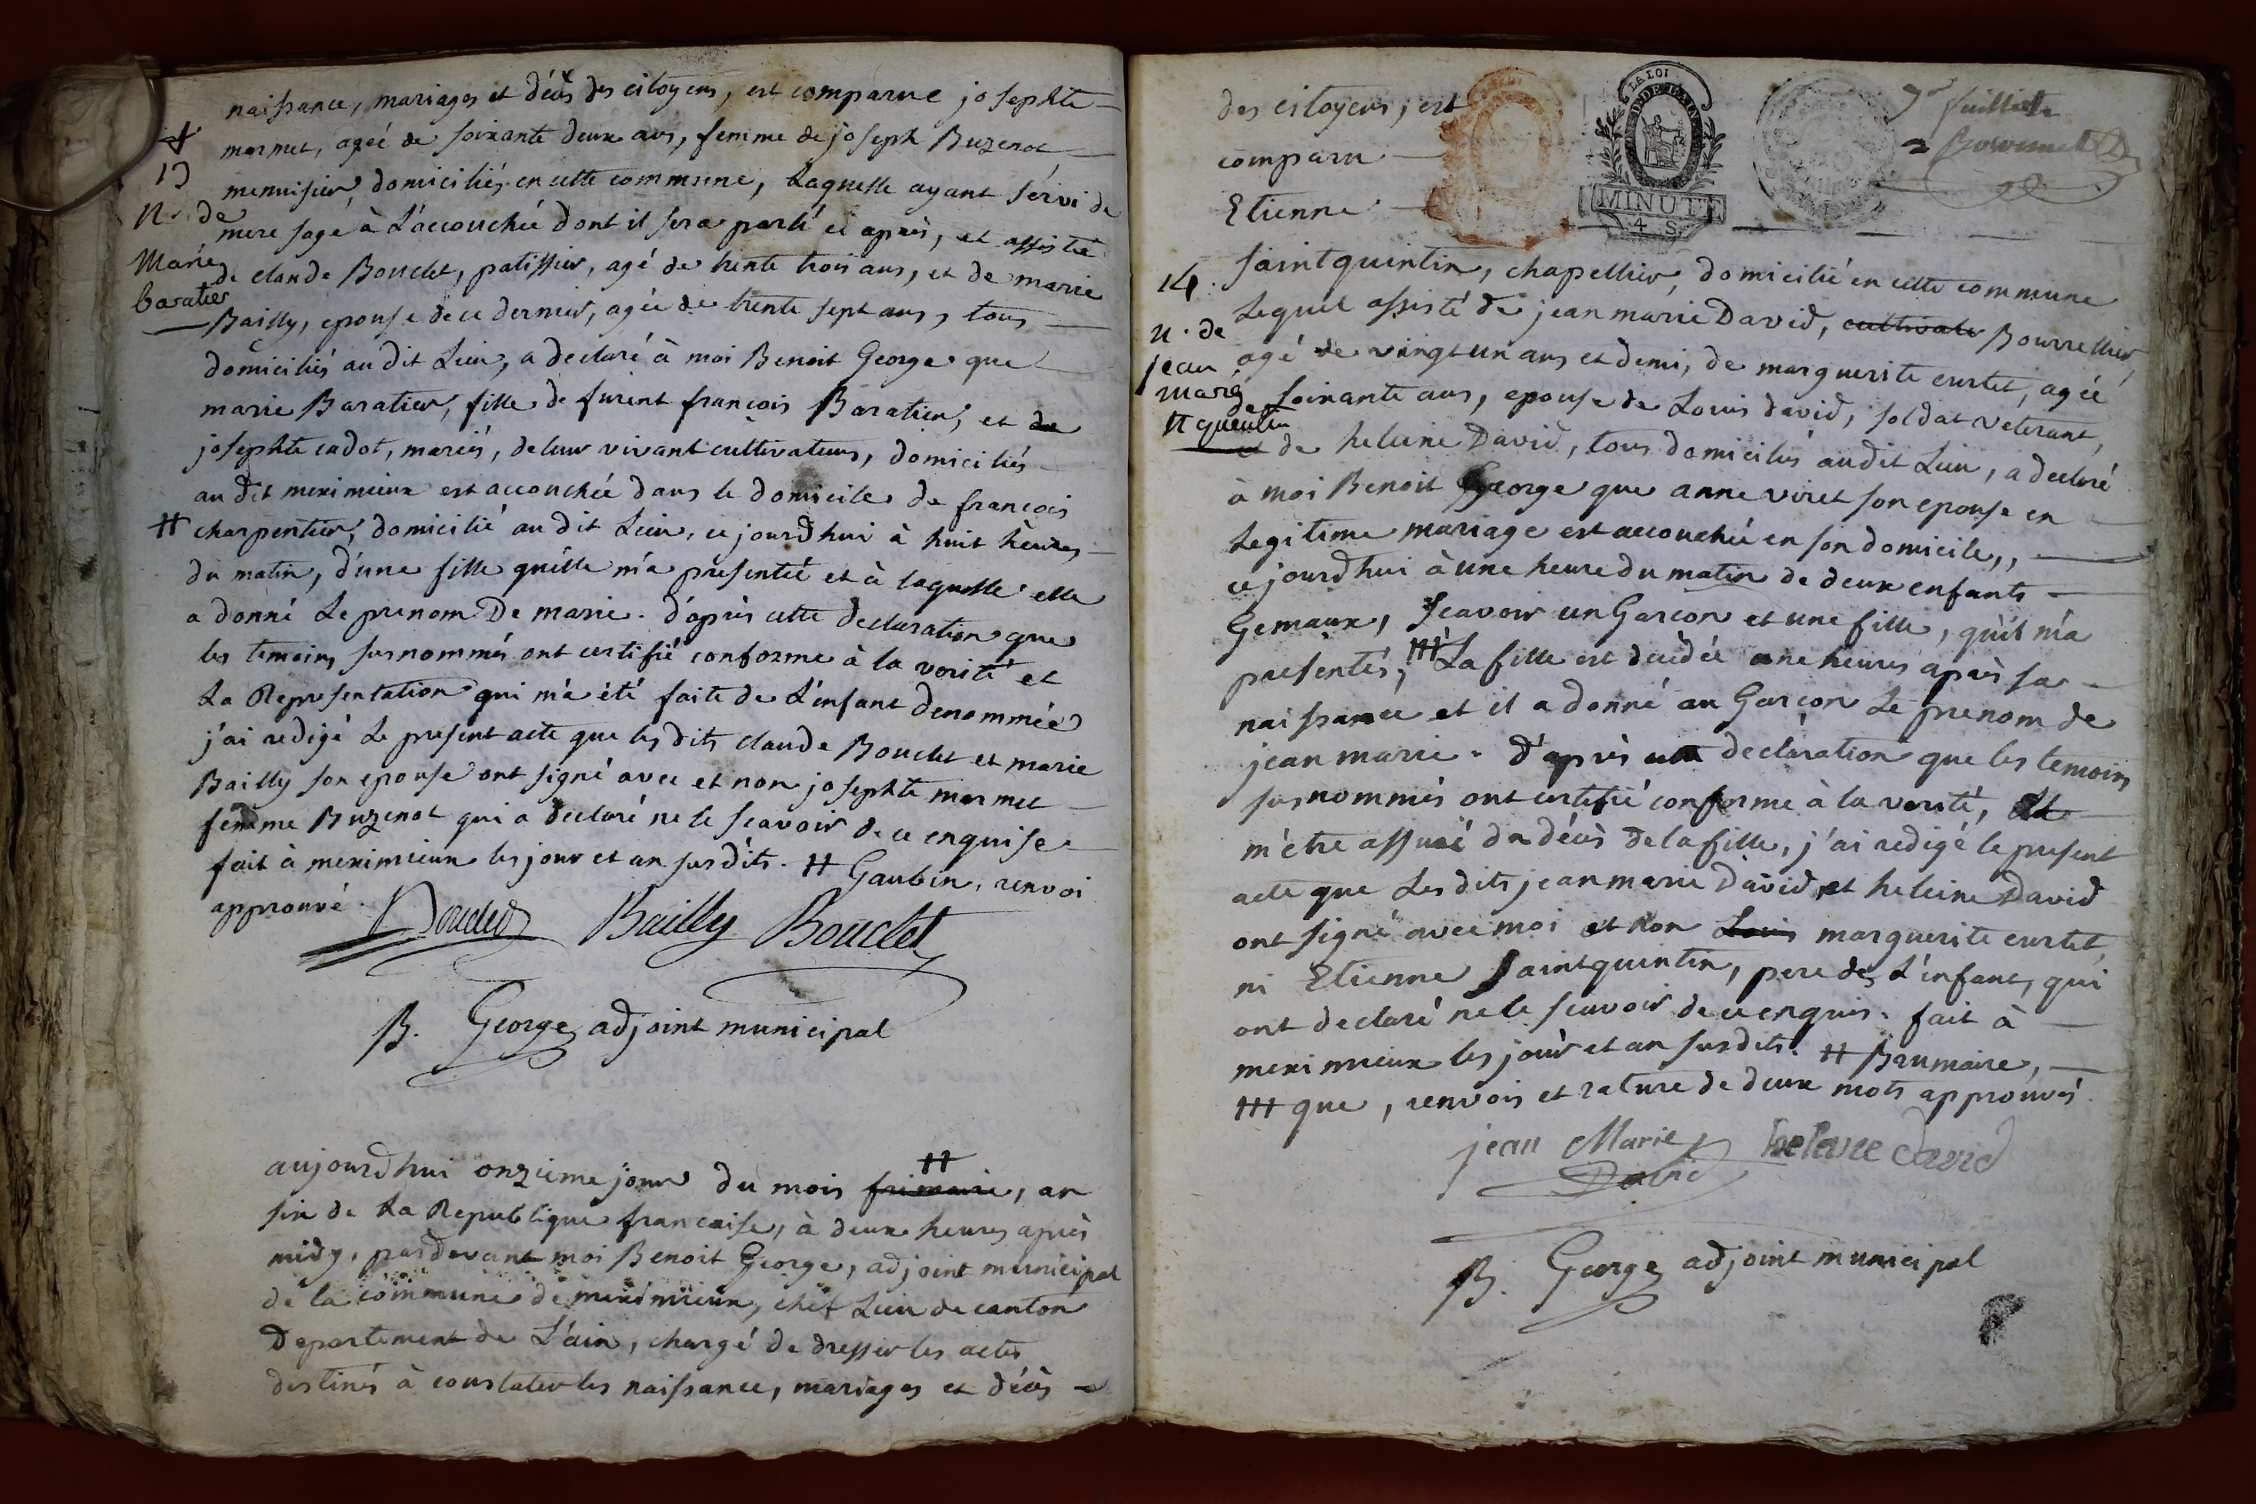 naissance, mariages et décès des citoyens, est comparue josephte
marmet, ageé de soixante deux ans, femme de joseph Buzenot
13
menuisier, domiciliés en cette commune, Laquelle ayant servi de
n. de
mere sage à L'accouchée dont il sera parlé ci après, et assisté
Marie
baratier
de claude Bouclet, patissier, agé de trente trois ans, et de marie
Bailly, epouse de ce dernier, agée de trente sept ans, tous
domiciliés au dit Lieu, a declaré à moi Benoit George que
marie Baratier, fille de furent françois Baratier, et de
josephte cadot, mariés, de leur vivant cultivateurs, domiciliés
au dit meximieux est accouchée dans le domicile de françois
# charpentier, domicilié au dit Lieu, ce jourd'hui à huit heures
du matin, d'une fille qu'elle m'a presentée et à laquelle elle
a donné Le prenom De marie. d'après cette declaration que
les temoins susnommés ont certifié conforme à la verité et
La Representation qui m'a été faite de L'enfant denommée
j'ai redigé Le present acte que les dits claude Bouclet et marie
Bailly son epouse ont signé avec et non josephte marmet
femme Buzenot qui a declaré ne le scavoir de ce enquise
fait à meximieux les jour et an susdits. # Gaubin, renvoi
approuvé.
Bailly Bouclet
B. George adjoint municipal
aujourd'hui onzieme jour du mois # frimaire, an
six de La Republique francaise, à deux heures après
midy, pardevant moi Benoit George, adjoint municipal
de la commune de meximieux, chef Lieu de canton
Departement de L'ain, chargé de dresser les actes
destinés à constater les naissance, mariages et décès
des citoyens, est
comparu
Etienne
LA LOI
MINUTE
4 S
7e feuillet
14.
saintquentin, chapellier, domicilié en cette commune
Lequel assisté de jean marie David, cultivate Bourrellier,
n. de
jean
marie
st quentin
agé de vingt un ans et demi, de marguerite curtet, agée
de soixante ans, epouse de Louis david, soldat veterant,
et de heleine David, tous domiciliés au dit Lieu, a declaré
à moi Benoit George que anne viret son epouse en
Legitime mariage est accouchée en son domicile,,
ce jourd'hui à une heure du matin de deux enfants
Gemaux, scavoir un Garcon et une fille, qu'il m'a
presentés, # La fille est decedée une heures après sa
naissance et il a donné au Garcon Le prenom de
jean marie. d'après cette declaration que les temoins
susnommés ont certifié conforme à la verité, et
m'etre assuré du décès de la fille, j'ai redigé le present
acte que Les dits jean marie David, et heleine David
ont signé avec moi et non Louis marguerite curtet,
ni Etienne saintquentin, pere de L'enfant, qui
ont declaré ne le scavoir de ce enquis. fait à
meximieux les jour et an susdits. # Brumaire,
# que, renvois et rature de deux mots approuvés.
jean Marie David helene david
B. George adjoint municipal